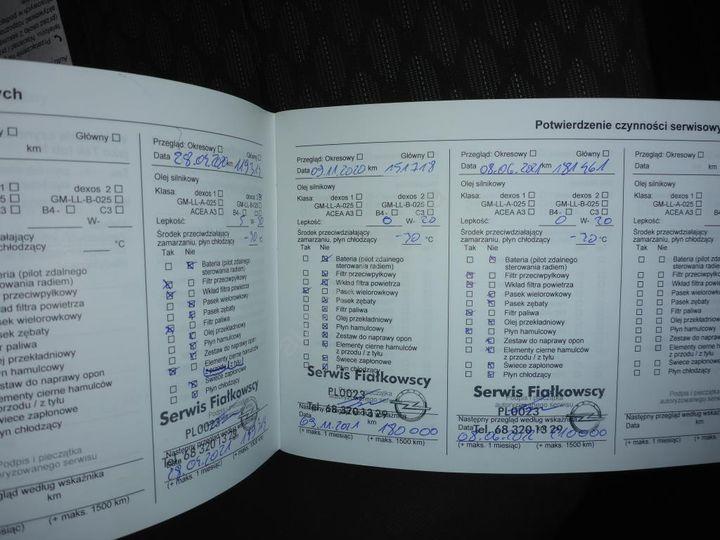 ych
Główny
km
dexos 2
GM-LL-B-025
C3
W-
°C
Bateria (pilot zdalnego
sterowania radiem)
Wkład filtra powietrza
Pasek zębaty
Płyn hamulcowy
Zestaw do naprawy opon
Elementy cierne hamulców
z przodu / z tyłu
Świece zapłonowe
Płyn chłodzący
Podpis i pieczątka
km
(+ maks. 1500 km)
Przegląd: Okresowy
Główny
Data 28.04.2020 km
Olej silnikowy
Klasa: dexos 1
GM-LL-A-025
GM-LL-B-025
ACEA A3 B4 - C3
Lepkość: W-
Środek przeciwdziałający
zamarzaniu, płyn chłodzący °C
Tak Nie
Bateria (pilot zdalnego
sterowania radiem)
Filtr przeciwpyłkowy
Wkład filtra powietrza
Pasek wielorowkowy
Pasek zębaty
Filtr paliwa
Olej przekładniowy
Płyn hamulcowy
Zestaw do naprawy opon
Elementy cierne hamulców
Świece zapłonowe
Płyn chłodzący
Serwis Fiałkowscy
PL0023
Tel. 68 320 13 29
(+ maks. 1 miesiąc) (+ maks. 1500 km)
Potwierdzenie czynności serwisowy
Przegląd: Okresowy Główny
Data 09.11.2020 km 151718
Olej silnikowy
Klasa: dexos 1 dexos 2
GM-LL-A-025 GM-LL-B-025
ACEA A3 B4 - C3
Lepkość: 0 W- 20
Środek przeciwdziałający
zamarzaniu, płyn chłodzący -30 °C
Tak Nie
Bateria (pilot zdalnego
sterowania radiem)
Filtr przeciwpyłkowy
Wkład filtra powietrza
Pasek wielorowkowy
Pasek zębaty
Filtr paliwa
Olej przekładniowy
Płyn hamulcowy
Zestaw do naprawy opon
Elementy cierne hamulców
z przodu / z tyłu
Świece zapłonowe
Płyn chłodzący
Serwis Fiałkowscy
PL0023
Tel. 68 320 13 29
Data km
180000
(+ maks. 1 miesiąc) (+ maks. 1500 km)
Przegląd: Okresowy Główny
Data 08.06.2021 km 181461
Olej silnikowy
Klasa: dexos 1 dexos 2
GM-LL-A-025 GM-LL-B-025
ACEA A3 B4 - C3
Lepkość: 0 W- 20
Środek przeciwdziałający
zamarzaniu, płyn chłodzący -30 °C
Tak Nie
Bateria (pilot zdalnego
sterowania radiem)
Filtr przeciwpyłkowy
Wkład filtra powietrza
Pasek wielorowkowy
Pasek zębaty
Filtr paliwa
Olej przekładniowy
Płyn hamulcowy
Zestaw do naprawy opon
Elementy cierne hamulców
z przodu / z tyłu
Świece zapłonowe
Płyn chłodzący
Serwis Fiałkowscy
PL0023
Następny przegląd według wskaźnika
Tel. 68 320 13 29
08.06.2022 210000
(+ maks. 1 miesiąc) (+ maks. 1500 km)
Przegląd: Okresowy
Data
Olej silnikowy
Klasa: dexos 1
GM-LL-A-025
ACEA A3
Lepkość:
Środek przeciwdziałający
zamarzaniu, płyn chłodzący
Tak Nie
Bateria (pilot
sterowania
Filtr przeciwp
Wkład filtra p
Pasek wielor
Pasek zębaty
Filtr paliwa
Olej przekład
Płyn hamulc
Zestaw do n
Elementy cie
z przodu / z
Świece zapł
Płyn chłodzą
Podpis i pieczątka
autoryzowanego serwisu
Data
(+ maks. 1 miesiąc)